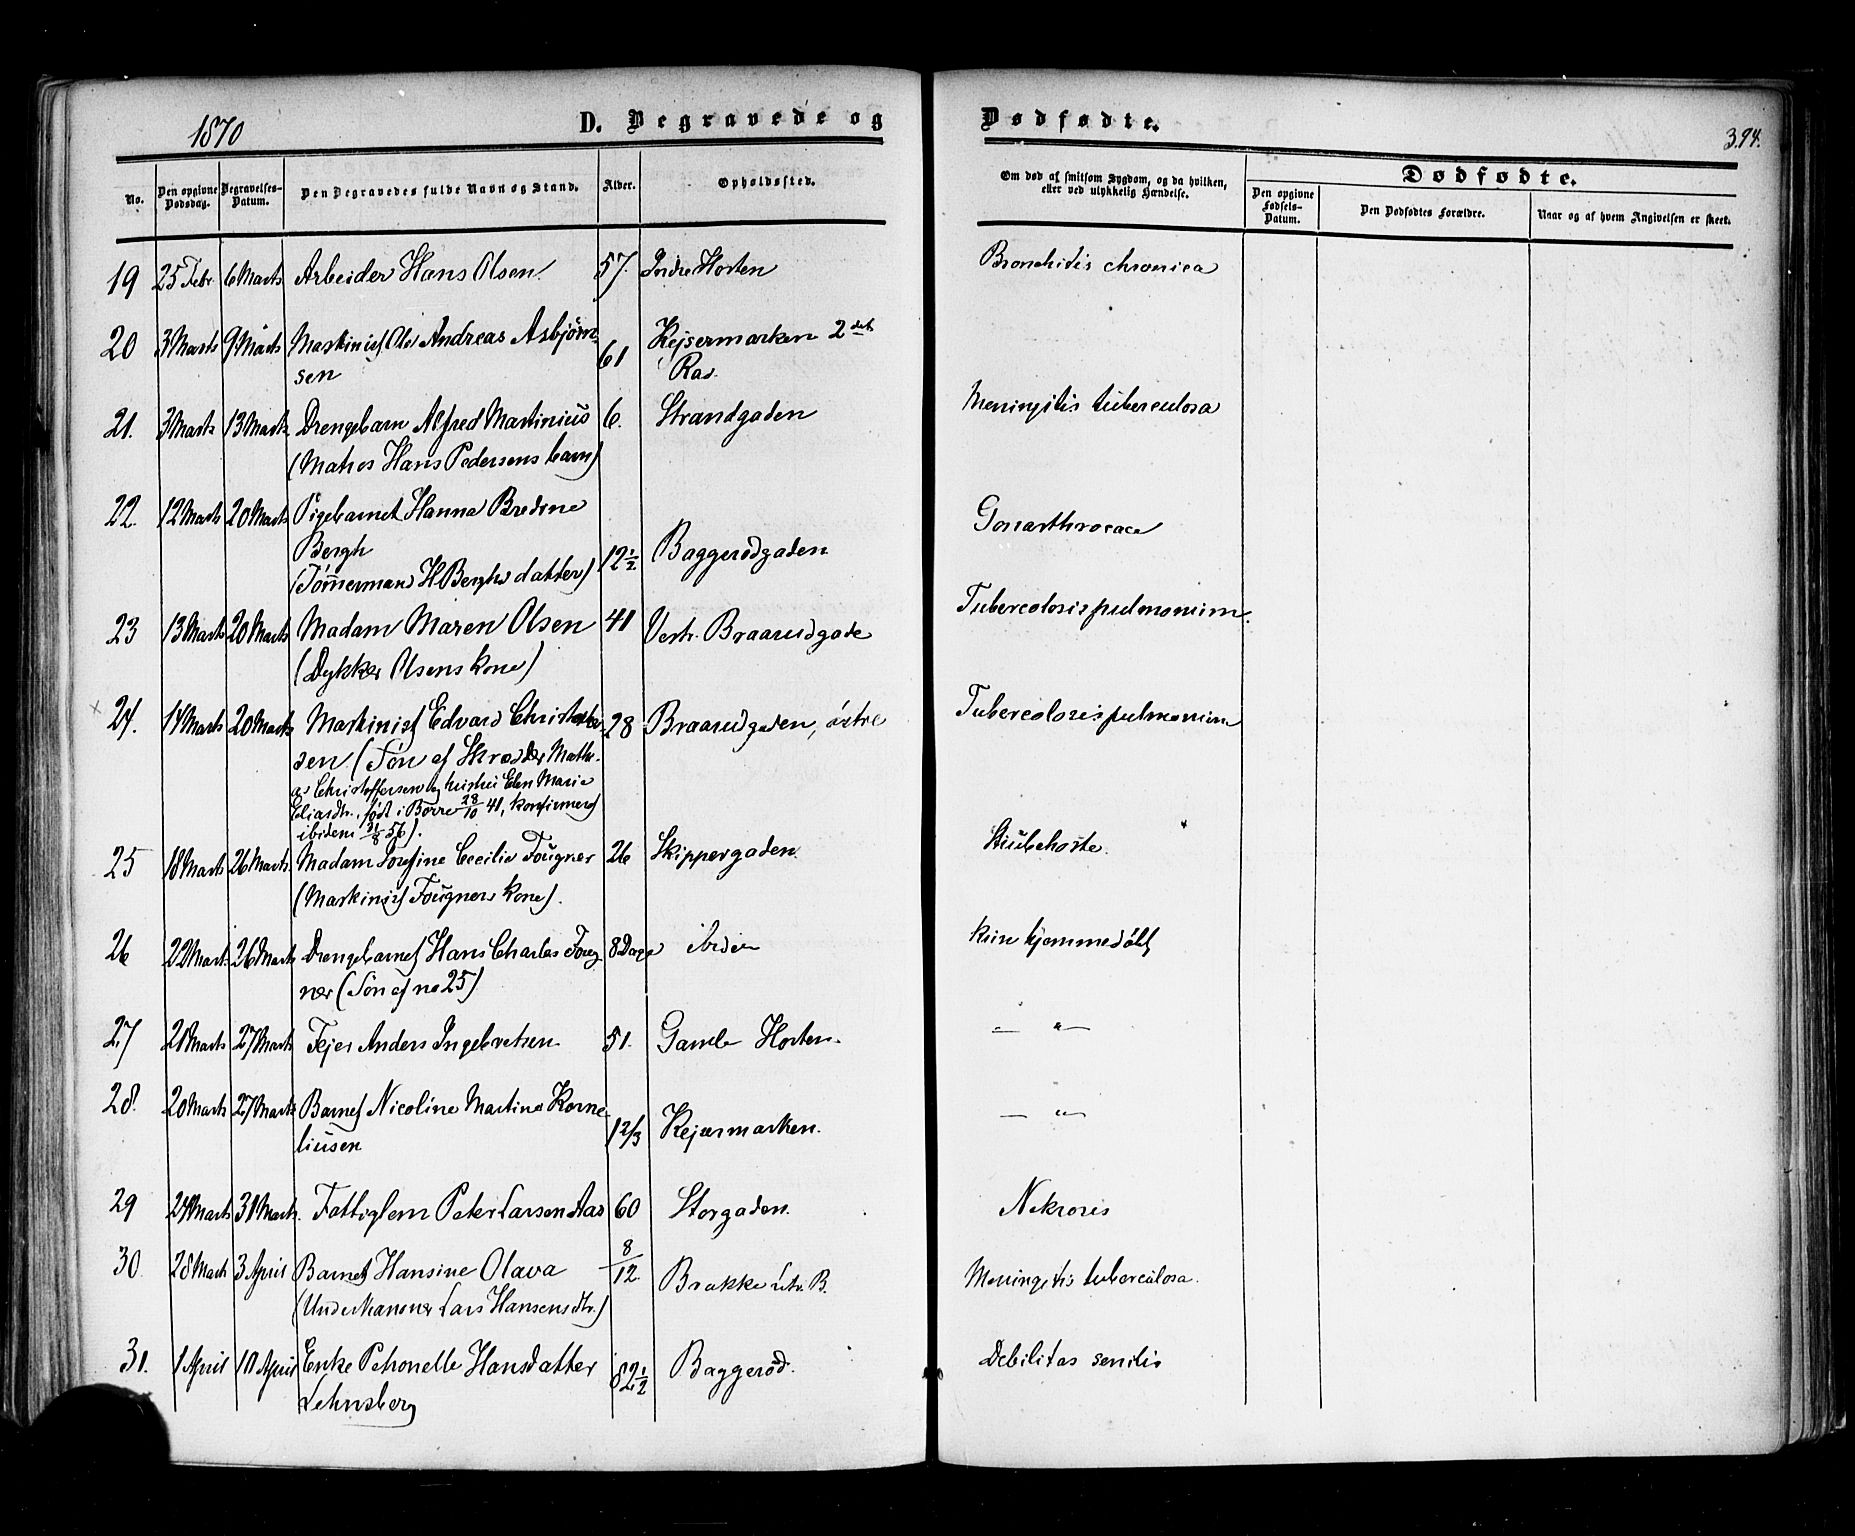 1870
D. Begravede og Dødfødte.
394.
No.
Den opgivne Dødsdag.
Begravelses-Datum.
Den Begravedes fulde Navn og Stand.
Alder.
Opholdssted.
Om død af smitsom Sygdom, og da hvilken, eller ved ulykkelig Hændelse.
Dødfødte.
Den opgivne Fødsels-Datum.
Den Dødfødtes Forældre.
Naar og af hvem Angivelsen er skeet.
19 25 Febr 6 Marts Arbeider Hans Olsen 57. Indre Horten Bronchitis chronica
20 3 Marts 9 Marts Maskinist Ole Andreas Asbjørn- 61 Kejsermarken 2det
sen Rad.
21. 3 Marts 13 Marts Drengebarn Alfred Martinius 6. Strandgaden Meningitis tuberculosa
(Matros Hans Pedersens barn)
22. 12 Marts 20 Marts Pigebarnet Hanna Bredine Gonarthrocace
Bergh 12 1/2 Baggerødgaden
(Tømmermand H Berghs datter)
23 13 Marts 20 Marts Madam Maren Olsen 41 Vestr. Braarudgade Tubercolosis pulmonum.
(Dykker Olsens kone)
24. 14 Marts 20 Marts Maskinist Edvard Christoffer- 28 Braarudgaden, østre Tubercolosis pulmonum
sen (Søn af Skrædder Mathi-
as Christoffersen og hustru Elen Marie
Eliasdtr., født i Borre 28/10 41, konfirmert
ibidem 31/8 56).
25 18 Marts 26 Marts Madam Josefine Cecilie Fougner 26 Skippergaden. Strubehoste.
(Maskinist Fougners kone).
26 22 Mart. 26 Marts Drengebarnet Hans Charles Foug- 8 Dage ibidem kun hjemmedøbt
ner (Søn af no 25)
27 21 Marts 27 Marts Fejer Anders Ingebretsen 51. Gamle Horten. — " —
28. 20 Marts 27 Marts Barnet Nicoline Martine Korne- 1 2/3 Kejsermarken. — " —
liusen
29 24 Marts 31 Marts. Fattiglem Peter Larsen Aas 60 Storgaden. Nekrosis
30. 28 Marts 3 April Barnet Hansine Olava 8/12. Brakke Litr. B. Meningitis tuberculosa.
(Underkanoner Lars Hansens dtr.)
31. 1 April 10 April Enke Petronelle Hansdatter 82 1/2 Baggerød. Debilitas senilis
Lehnsberg